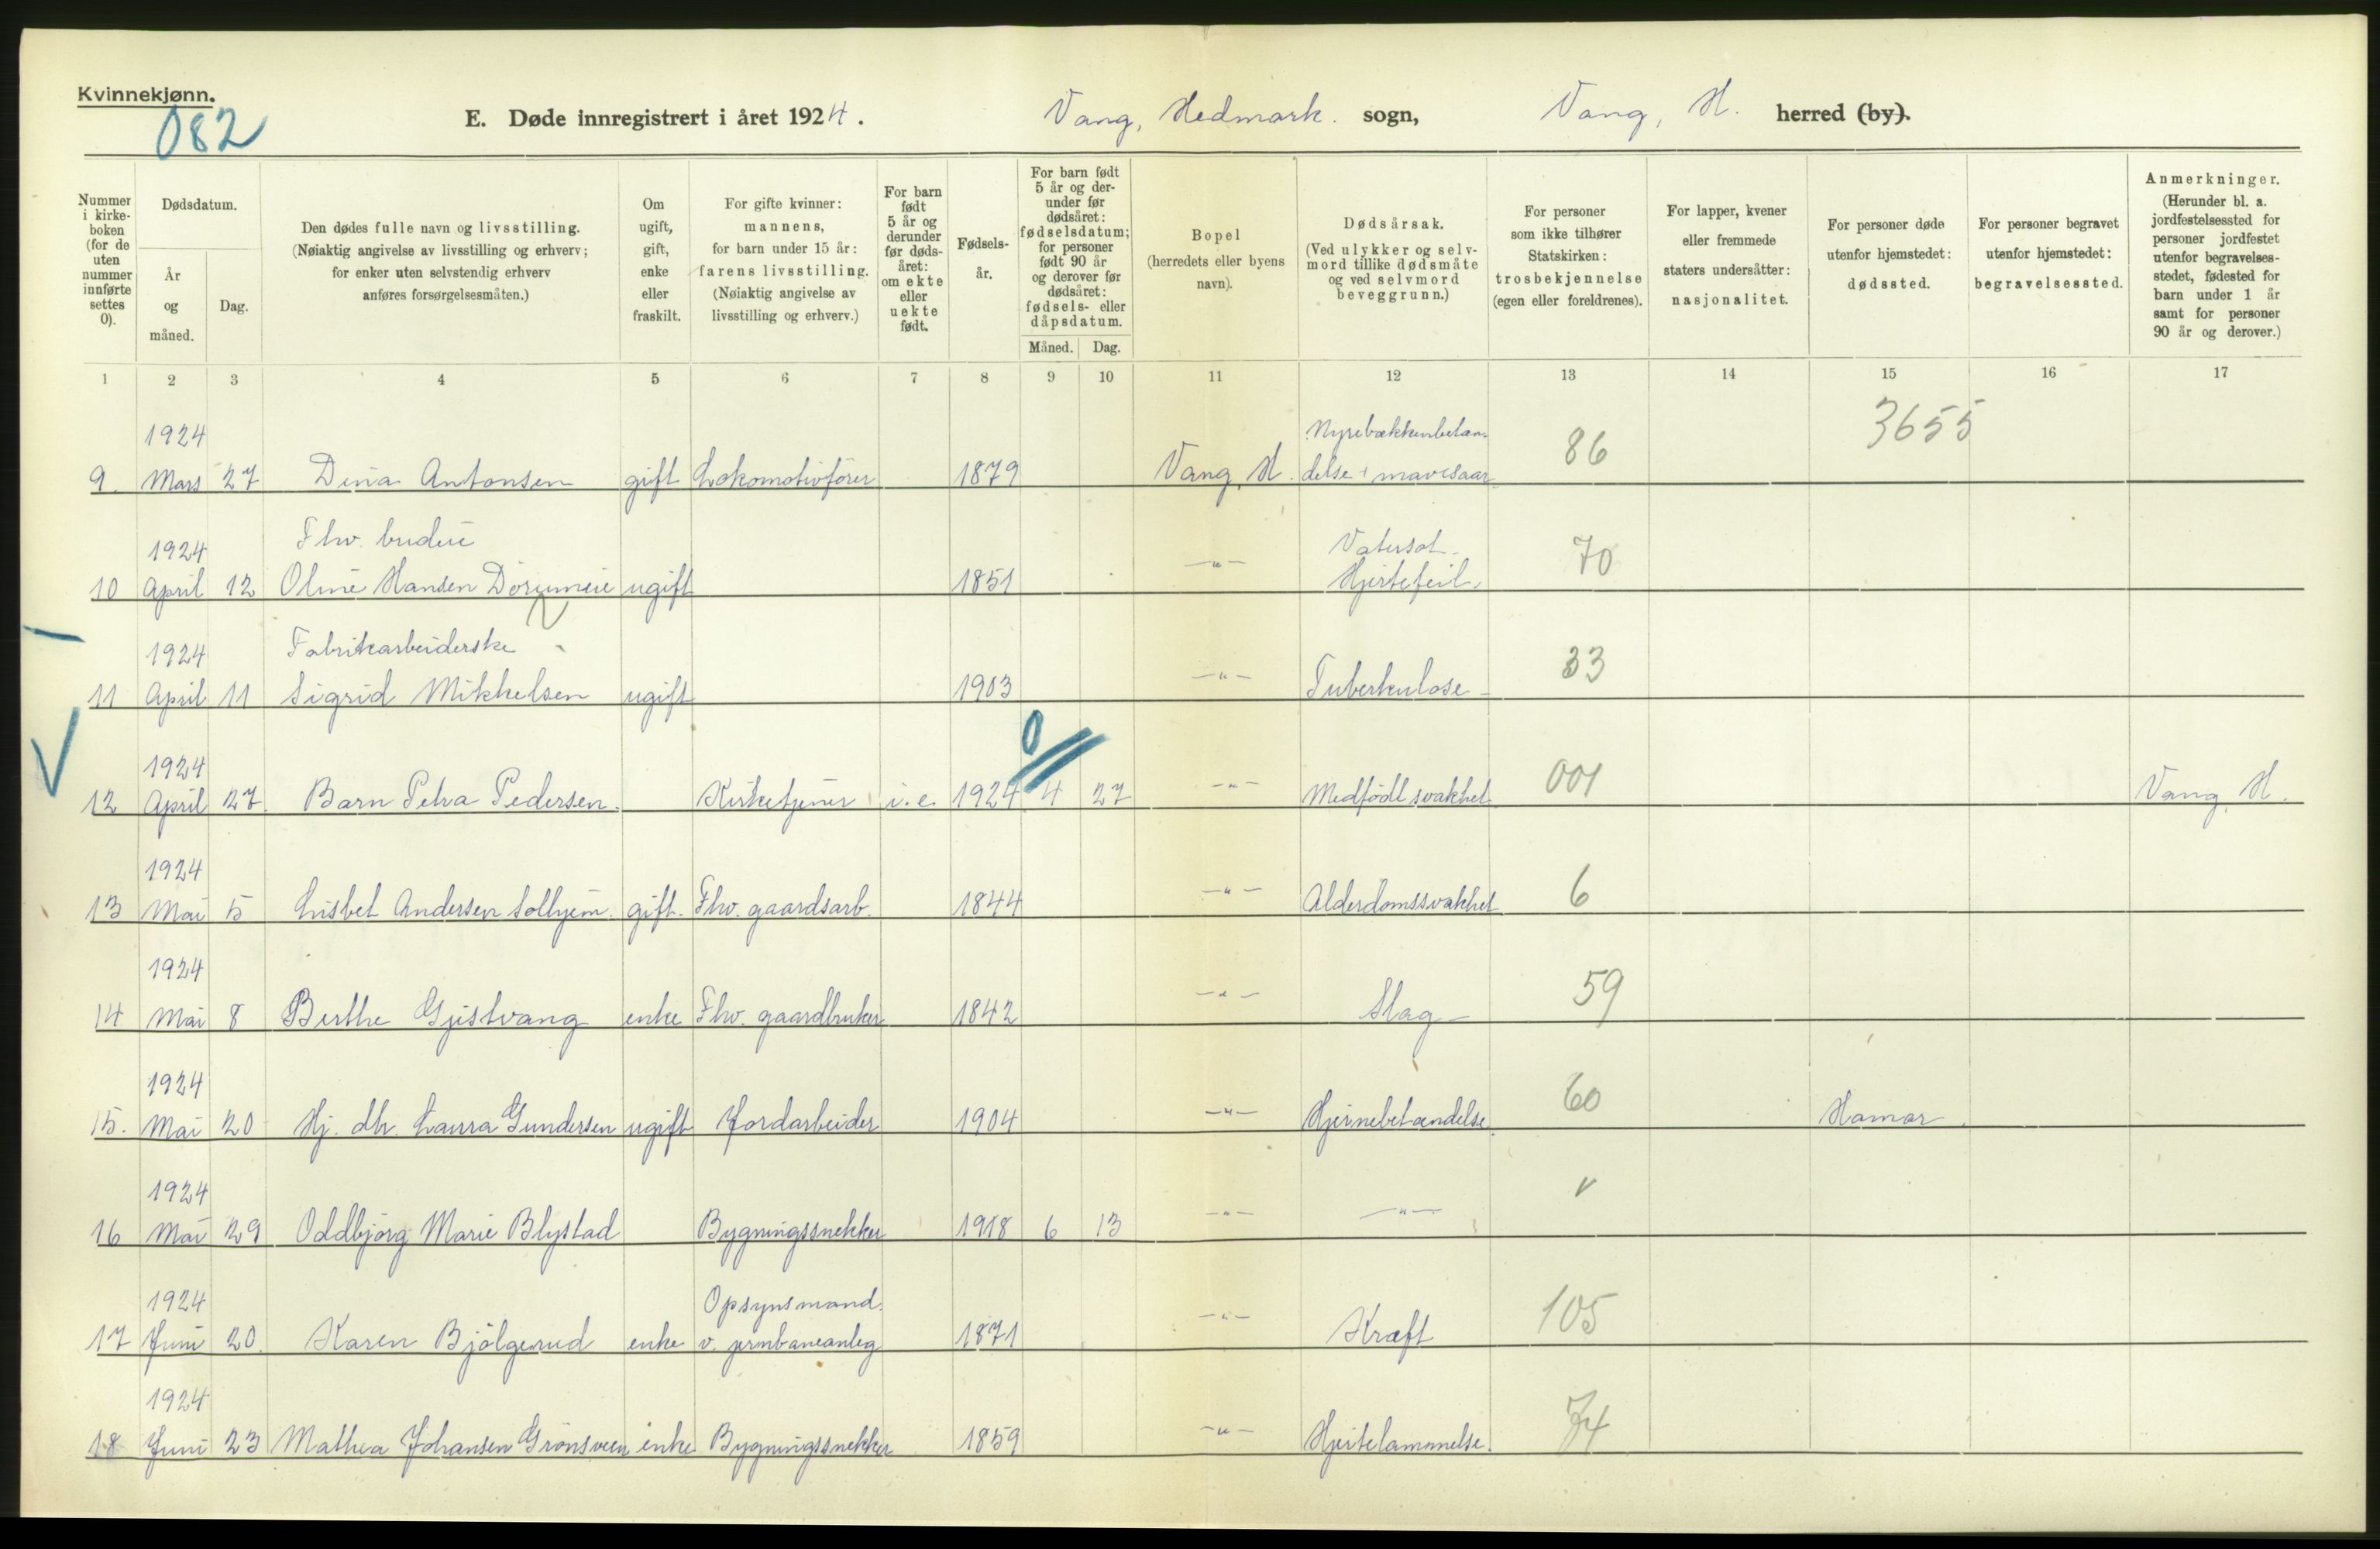 Kvinnekjønn.
082
E. Døde innregistrert i året 1924. Vang, Hedmark. sogn, Vang, H. herred (by).
Nummer i kirkeboken (for de uten nummer innførte settes 0).
Dødsdatum.
År og måned.
Dag.
Den dødes fulle navn og livsstilling.
(Nøiaktig angivelse av livsstilling og erhverv;
for enker uten selvstendig erhverv
anføres forsørgelsesmåten.)
Om ugift, gift, enke eller fraskilt.
For gifte kvinner:
mannens,
for barn under 15 år:
farens livsstilling.
(Nøiaktig angivelse av
livsstilling og erhverv.)
For barn født 5 år og derunder før dødsåret: om ekte eller uekte født.
Fødselsår.
For barn født 5 år og derunder før dødsåret: fødselsdatum; for personer født 90 år og derover før dødsåret: fødsels- eller dåpsdatum.
Måned. Dag.
Bopel
(herredets eller byens
navn).
Dødsårsak.
(Ved ulykker og selvmord tillike dødsmåte og ved selvmord beveggrunn.)
For personer
som ikke tilhører
Statskirken:
trosbekjennelse
(egen eller foreldrenes).
For lapper, kvener
eller fremmede
staters undersåtter:
nasjonalitet.
For personer døde
utenfor hjemstedet:
dødssted.
For personer begravet
utenfor hjemstedet:
begravelsessted.
Anmerkninger.
(Herunder bl. a.
jordfestelsessted for
personer jordfestet
utenfor begravelses-
stedet, fødested for
barn under 1 år
samt for personer
90 år og derover.)
1 2 3 4 5 6 7 8 9 10 11 12 13 14 15 16 17
1924 Nyrebækkenbetæn 86 3655
9. Mars 27 Dina Antonsen gift Lokomotivfører 1879 Vang, H. delse + mavesaar
1924 Fhv. budeie Vatersot. 70
10 April 12 Oline Hansen Dörumeie ugift 1851 —"— Hjertefeil.
1924 Fabrikarbeiderske 33
11 April 11 Sigrid Mikkelsen ugift 1903 —"— Tuberkulose
1924 0 001
12 April 27. Barn Petra Pedersen. Kirketjener i. e. 1924 4 27 —"— Medfödt svakhet Vang, H.
1924 6
13 Mai 5 Lisbet Andersen Solhjem. gift. Fhv. gaardsarb. 1844 —"— Alderdomssvakhet
1924 59
14 Mai 8 Berthe Gjestvang enke Fhv. gaardbruker 1842 —"— Slag
1924 60
15. Mai 20 Hj. dtr. Laura Gundersen ugift Jordarbeider 1904 —"— Hjernebetændelse. Hamar.
1924
16 Mai 29 Oddbjörg Marie Blystad Bygningssnekker 1918 6 13 —"— —"—
1924 Opsynsmand 105
17 Juni 20. Karen Bjölgerud enke v. jernbaneanleg 1871 —"— Kræft
1924 74
18 Juni 23 Mathea Johansen Grönsveen enke Bygningssnekker 1859 —"— Hjertelammelse.